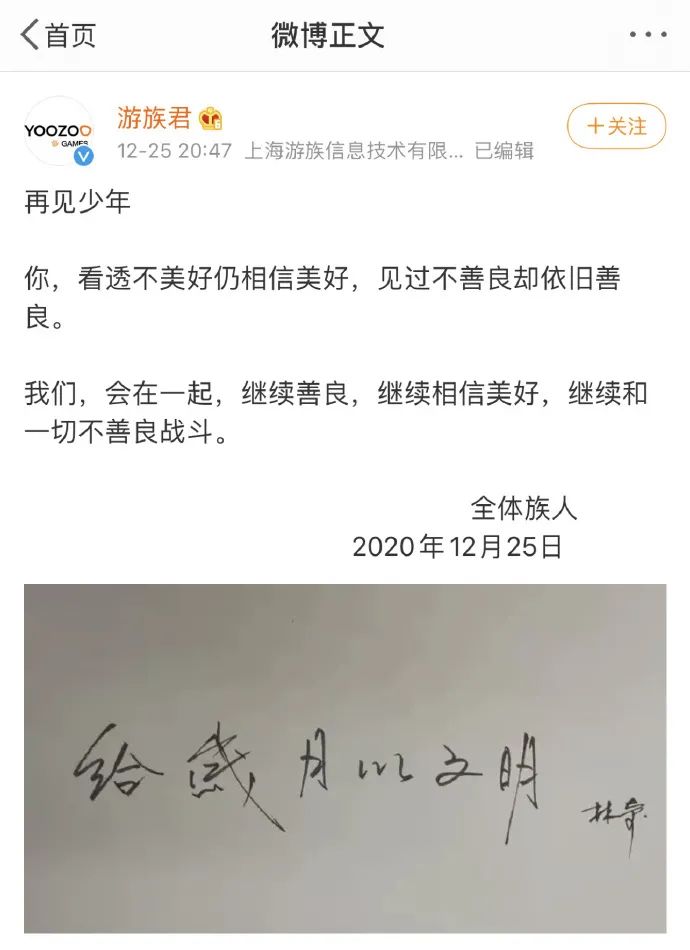 首页
微博正文
YOOZOO
GAMES
游族君
12-25 20:47 上海游族信息技术有限... 已编辑
+关注
再见少年
你，看透不美好仍相信美好，见过不善良却依旧善
良。
我们，会在一起，继续善良，继续相信美好，继续和
一切不善良战斗。
全体族人
2020年12月25日
给岁月以文明
林奇